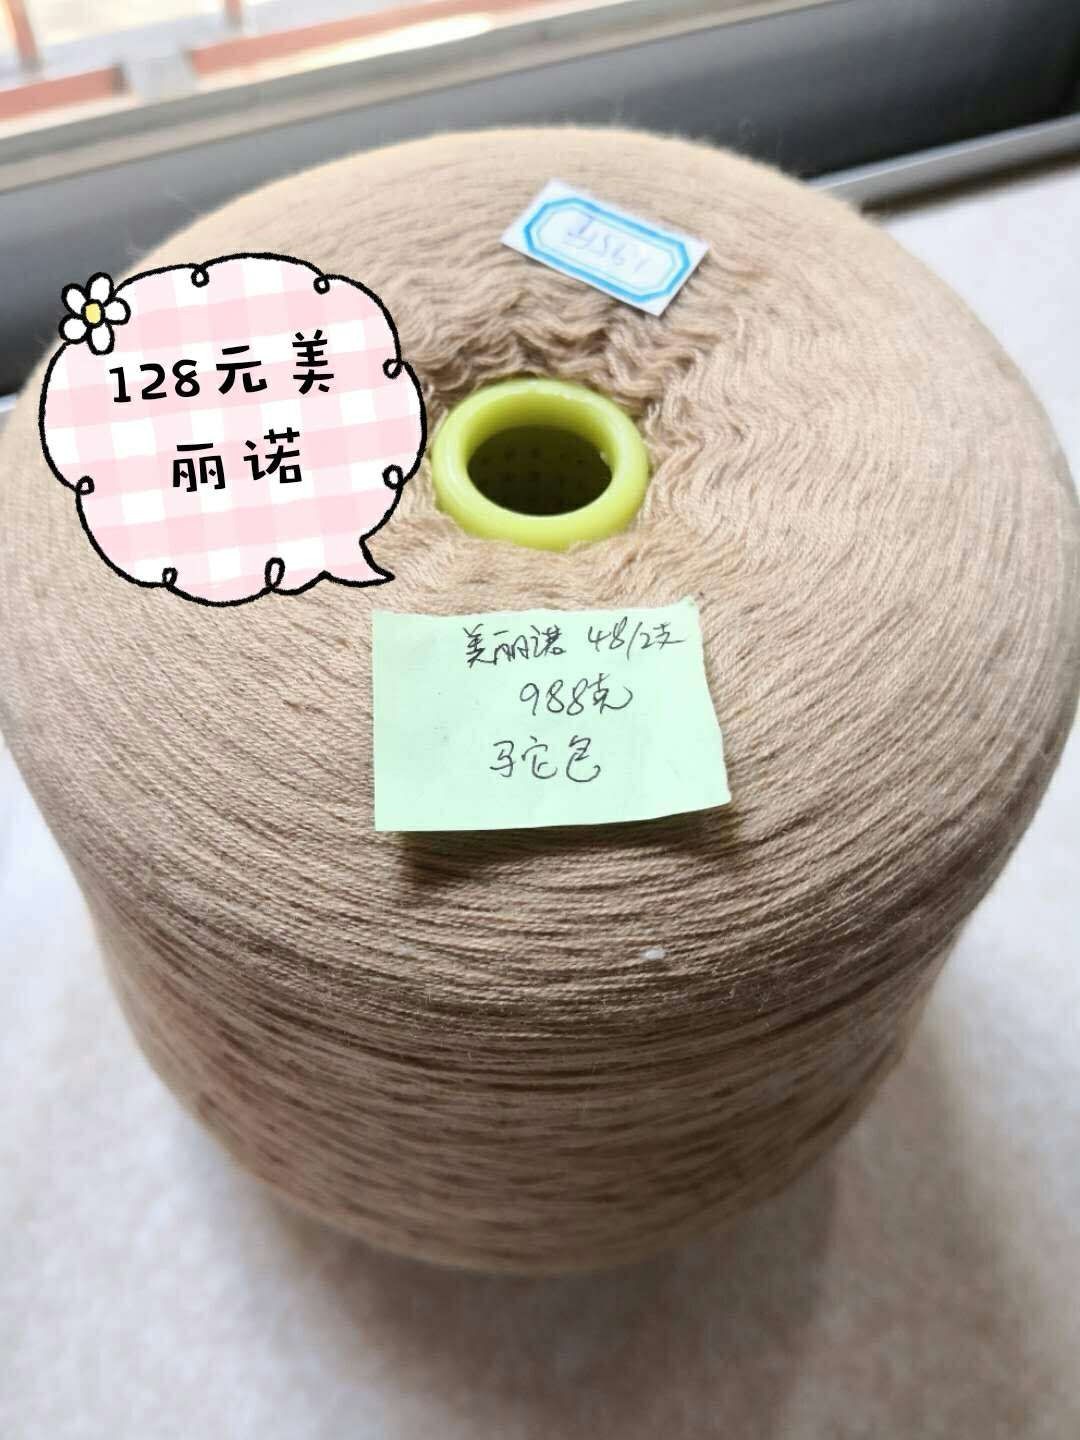 128元美
丽诺
美丽诺 48/2支
988克
驼色